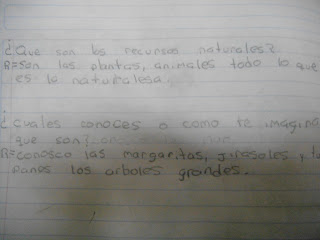 ¿Que son los recursos naturales?
R=Son las plantas, animales todo lo que
es la naturalesa.
¿cuales conoces o como te imagina
que son?
R=conosco las margaritas, jirasoles y tu
panes los arboles grandes.